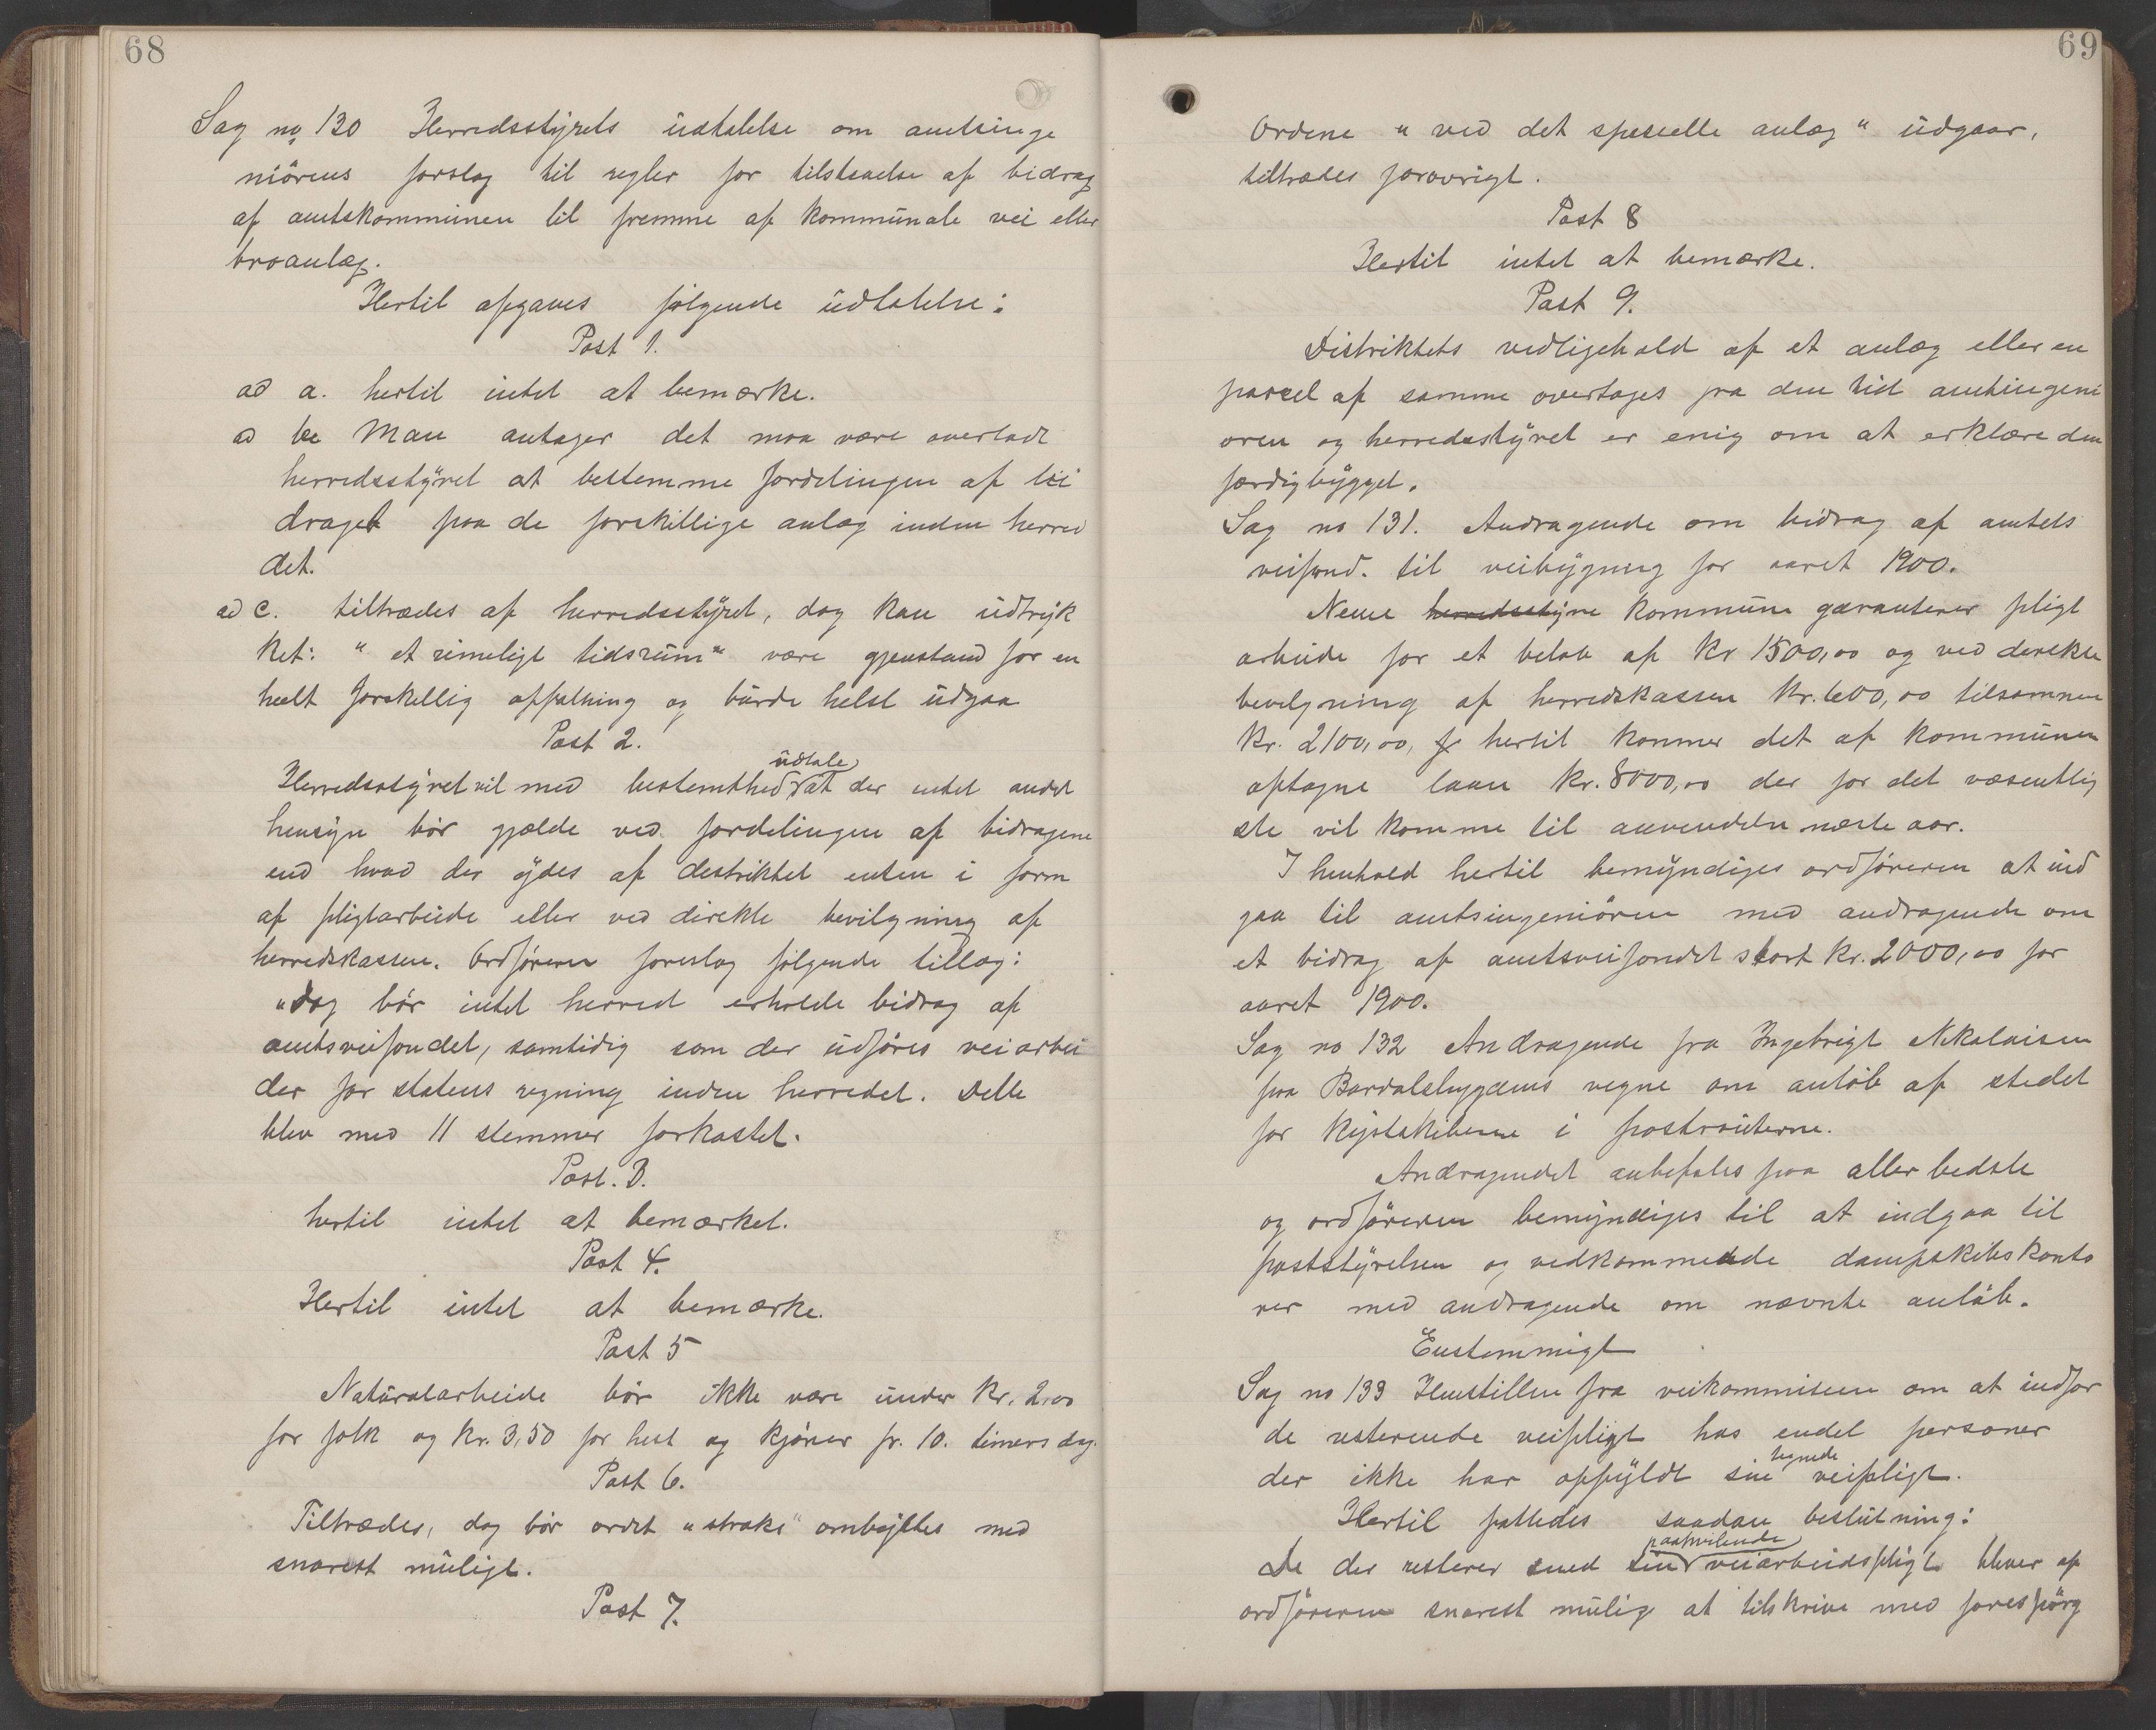 68
Sag no 130 Herredsstyrets udtalelse om amtsinge
niörens forslag til regler for tilstaaelse af bidrag
af amtskommunen til fremme af kommunale vei eller
broanlæg.
Hertil afgaves følgende udtalelse:
Post 1.
ad a. hertil intet at bemærke.
ad b. Man antager det maa være overladt
herredsstyret at bestemme fordelingen af bi
draget paa de forskillige anlæg inden herre
det.
ad c. tiltrædes af herredsstyret, dog kan udtryk
ket: "et rimeligt tidsrum" være gjenstand for en
heelt forskellig opfatning og burde helst udgaa
Post 2.
udtale
Herredsstyret vil med bestemthed at der intet andet
hensyn bör gjælde ved fordelingen af bidragene
end hvad der ydes af destriktet enten i form
af pligtarbeide eller ved direkte bevilgning af
herredskassen. Ordföreren foreslog følgende tillæg:
"dog bör intet herred erholde bidrag af
amtsveifondet, samtidig som der udföres veiarbei
der for statens regning inden herredet. Dette
blev med 11 stemmer forkastet.
Post. 3.
hertil intet at bemærket.
Post 4.
Hertil intet at bemærke.
Post 5
Naturalarbeide bör ikke være under kr. 2,00
for folk og kr. 3,50 for hest og kjörer pr. 10. timers dag.
Post 6.
Tiltrædes, dog bör ordet "straks" ombyttes med
snarest muligt.
Post 7.
69
Ordene "ved det spesielle anlæg" udgaar,
tiltrædes forøvrigt.
Post 8
Hertil intet at bemærke.
Post 9.
Distriktets vedligehold af et anlæg eller en
parcel af samme overtages fra den tid amtingeni
øren og herredsstyret er enig om at erklære den
færdigbygget.
Sag no 131. Andragende om bidrag af amtets
veifond. til veibygning for aaret 1900.
Nesne herredsstyre kommune garanterer pligt
arbeide for et beløb af Kr 1500,00 og ved derekte
bevilgning af herredskassen Kr. 600,00 tilsammen
Kr. 2100,00, hertil kommer det af kommunen
optagne laan Kr. 8000,00 der for det væsentlig
ste vil komme til anvendelse næste aar.
I henhold hertil bemyndiges ordföreren at ind
gaa til amtsingeniören med andragende om
et bidrag af amtsveifondet stort Kr. 2000,00 for
aaret 1900.
Sag no 132 Andragende fra Ingebrigt Nikolaisen
paa Bardalsbygdens vegne om anlöb af stedet
for kystskibene i postrouterne.
Andragendet anbefales paa aller bedste
og ordföreren bemyndiges til at indgaa til
poststyrelsen og vedkommende dampskibskonto
rer med andragende om nævnte anlöb.
Enstemmigt
Sag no 133 Henstillen fra veikommisen om at indfor
de resterende veipligt hos endel personer
lignede
der ikke har opfyldt sin veipligt.
Hertil fattedes saadan beslutning:
paahvilende
De der resterer med sin veiarbeidspligt bliver af
ordföreren snarest mulig at tilskrive med forespörg